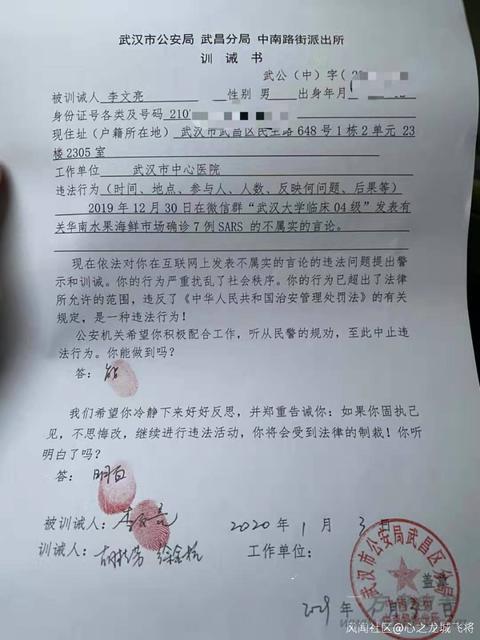 武汉市公安局 武昌分局 中南路街派出所
训 诫 书
武公（中）字（
被训诫人 李文亮 性别 男 出身年月
身份证号各类及号码 210
现住址（户籍所在地） 武汉市武昌区民主路 648 号 1 栋 2 单元 23
楼 2305 室
工作单位 武汉市中心医院
违法行为（时间、地点、参与人、人数、反映何问题、后果等）
2019 年 12 月 30 日在微信群“武汉大学临床 04 级”发表有
关华南水果海鲜市场确诊 7 例 SARS 的不属实的言论。
现在依法对你在互联网上发表不属实的言论的违法问题提出警
示和训诫。你的行为严重扰乱了社会秩序。你的行为已超出了法律
所允许的范围，违反了《中华人民共和国治安管理处罚法》的有关
规定，是一种违法行为！
公安机关希望你积极配合工作，听从民警的规劝，至此中止违
法行为。你能做到吗？
答： 能
我们希望你冷静下来好好反思，并郑重告诫你：如果你固执己
见，不思悔改，继续进行违法活动，你将会受到法律的制裁！你听
明白了吗？
答： 明白
被训诫人：李文亮 2020 年 1 月 3 日
训诫人： 工作单位：
武汉市公安局武昌区分局
盖章
年 月 3 日
风闻社区@心之龙城飞将